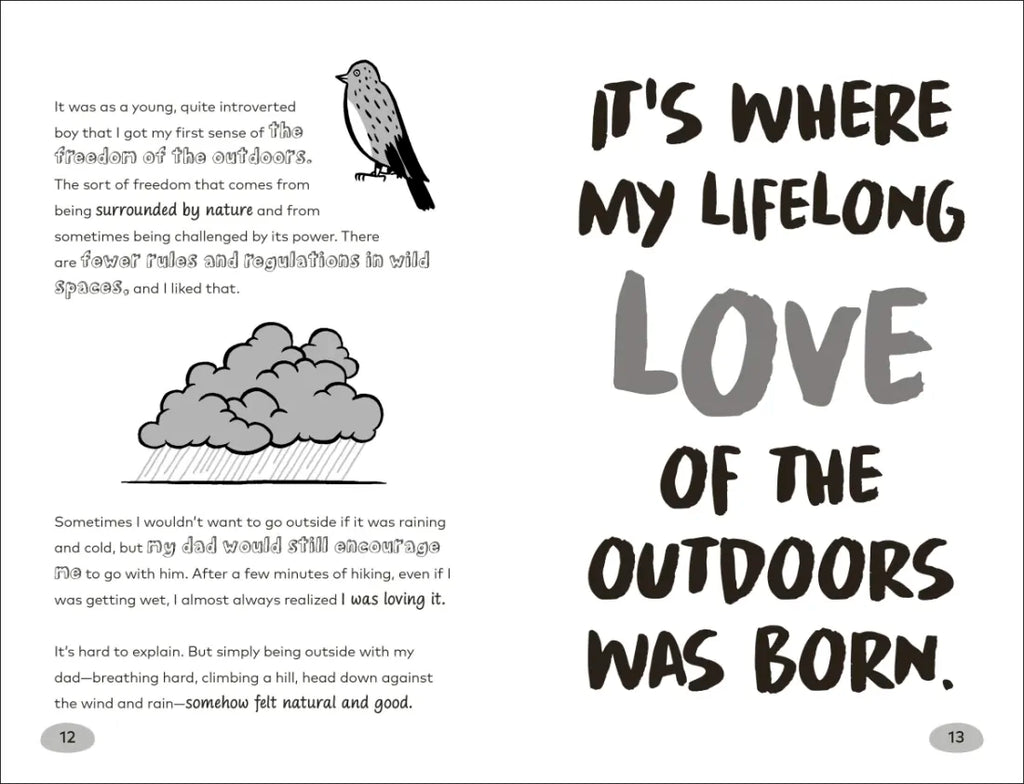 It was as a young, quite introverted
boy that I got my first sense of the
freedom of the outdoors.
The sort of freedom that comes from
being surrounded by nature and from
sometimes being challenged by its power. There
are fewer rules and regulations in wild
spaces, and I liked that.
Sometimes I wouldn't want to go outside if it was raining
and cold, but my dad would still encourage
me to go with him. After a few minutes of hiking, even if I
was getting wet, I almost always realized I was loving it.
It's hard to explain. But simply being outside with my
dad—breathing hard, climbing a hill, head down against
the wind and rain—somehow felt natural and good.
12
IT'S WHERE
MY LIFELONG
LOVE
OF THE
OUTDOORS
WAS BORN.
13